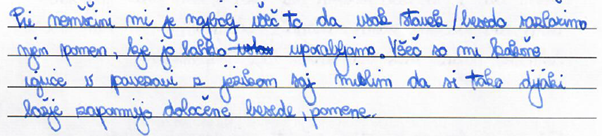 Pri nemščini mi je najbolj všeč to da vsak stavek / besedo razložimo
njen pomen, kje jo lahko uporabljamo. Všeč so mi kakšne
igrice v povezavi z jezikom saj mislim da si tako dijaki
lažje zapomnijo določene besede, pomene.